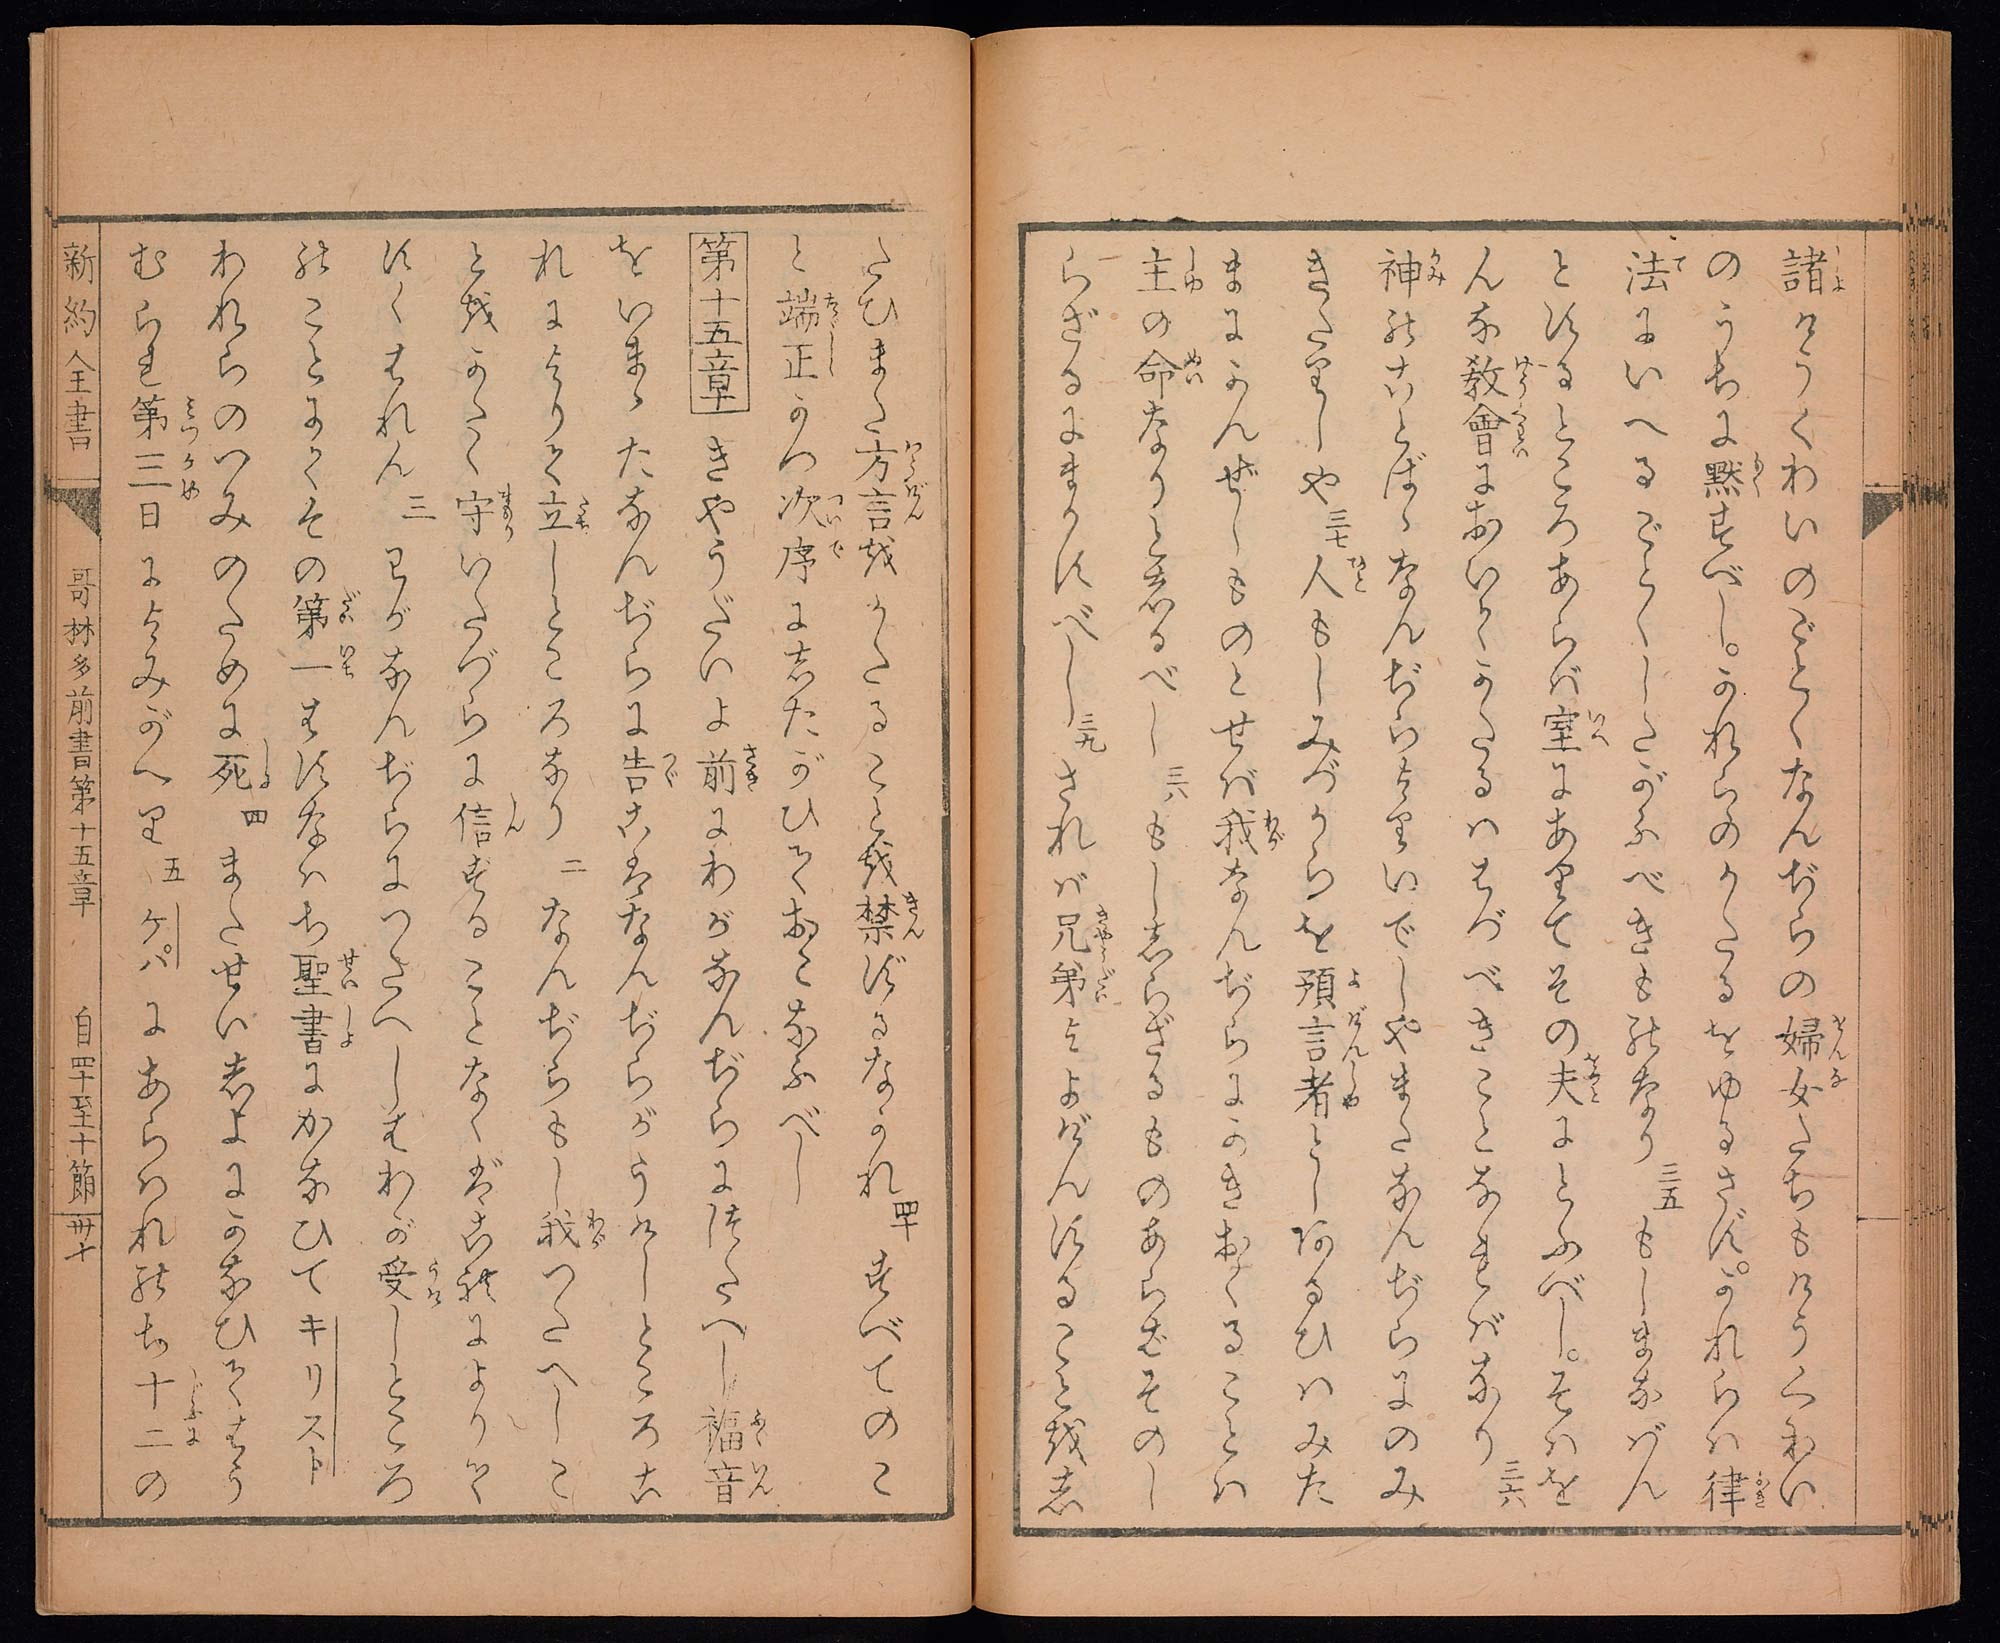 諸けうくわいのごとくなんぢらの婦女たちもけうくわい
のうちに黙すべし。かれらのかたるをゆるさず。かれらハ律
法にいへるごとくしたがふべきもの なり 三五 もしまなばん
とするところあらバ室にありてその夫にとふべし。そハを
んな教會においてかたるハはづべきことなれバなり 三六
神のことばゝなんぢらよりいでしやまたなんぢらにのみ
きたりしや 三七 人もしみづからを預言者としあるひハみた
まにかんぜしものとせバ我なんぢらにかきおくることハ
主の命なりと志るべし 三八 もし志らざるものあらむそのし
らざるにまかすべし 三九 されバ兄弟よよげんすること越志
たひまた方言越かたること越禁ずるなかれ 四十 すべてのこ
と端正かつ次序に志たがひておこなふべし
第十五章 きやうだいよ前にわがなんぢらに傳へし福音
をいまゝたなんぢらに告これなんぢらがうけしところこ
れによりて立しところなり 二 なんぢらもし我つたへしこ
と越かたく守いたづらに信ずることなくバこれによりて
すくはれん 三 わがなんぢらにつたへしはわが受しところ
のことにてその第一はすなハち聖書にかなひてキリスト
われらのつみのために死 四 またせい志よにかなひてはう
むられ第三日によみがへり 五 ケパにあらハれのち十二の
新約全書 哥林多前書第十五章 自四十至十節 卅十